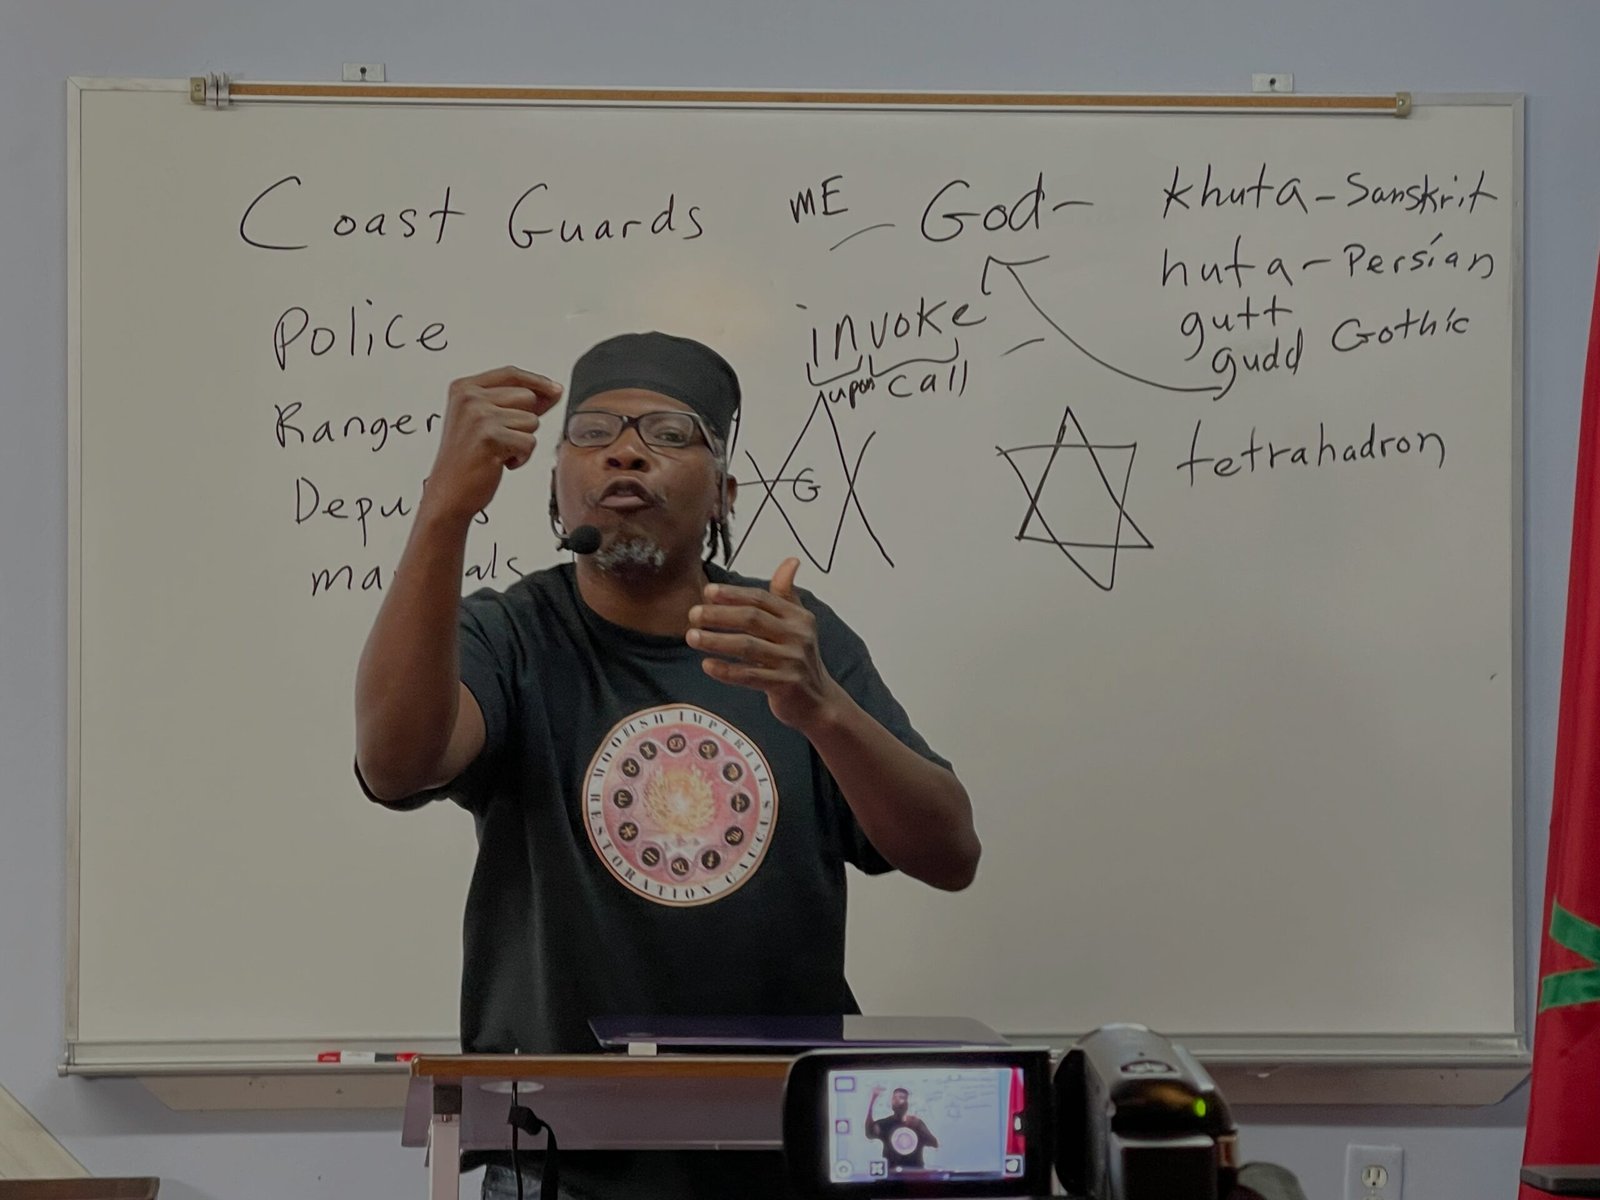 Coast Guards
Police
Ranger
Depu s
ma als
ME
God-
invoke
upon call
G
khuta - Sanskrit
huta - Persian
gutt
gudd Gothic
tetrahadron
MOORISH IMPERIAL
RESTORATION CAUCUS